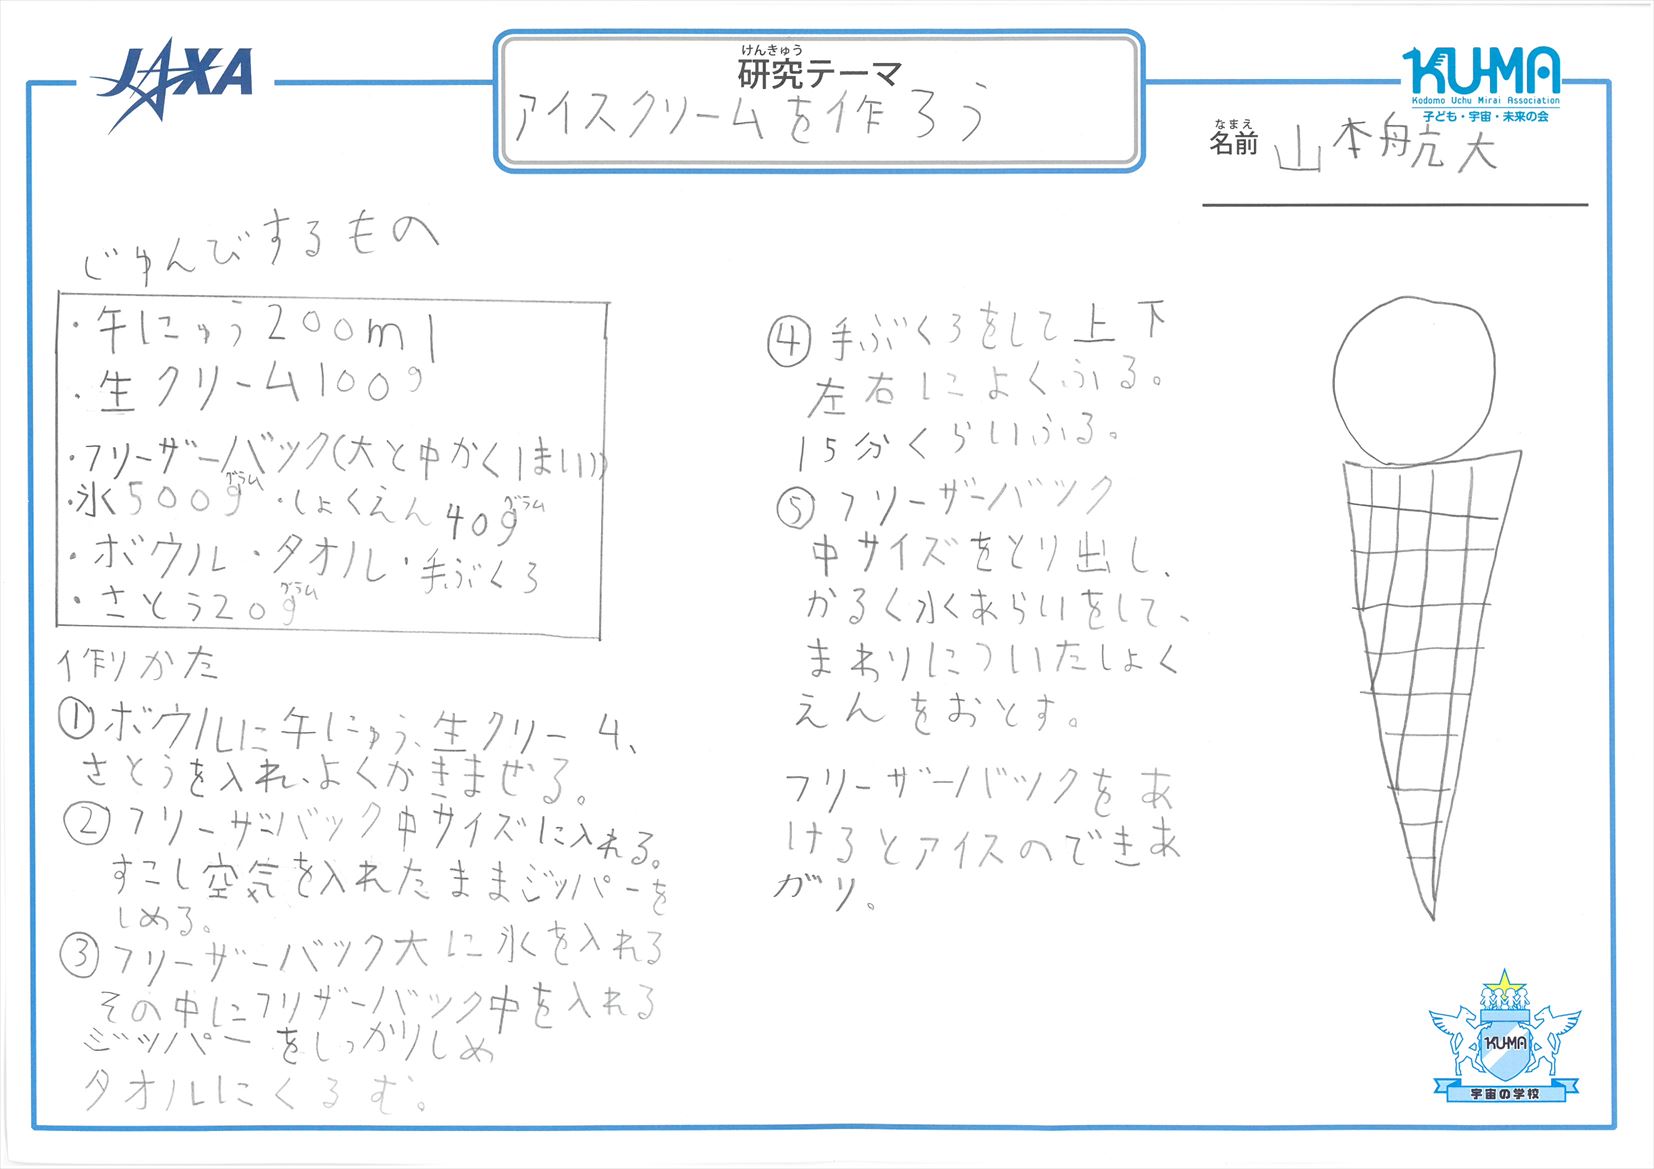 JAXA
けんきゅう
研究テーマ
アイスクリームを作ろう
KU-MA
Kodomo Uchu Mirai Association
子ども・宇宙・未来の会
なまえ
名前 山本航大
じゅんびするもの
・牛にゅう200ml
・生クリーム100g
・フリーザーバック(大と中かく1まい)
・氷500g グラム ・しょくえん40g グラム
・ボウル・タオル・手ぶくろ
・さとう20g グラム
作りかた
①ボウルに牛にゅう、生クリーム、
さとうを入れ、よくかきまぜる。
②フリーザーバック中サイズに入れる。
すこし空気を入れたままジッパーを
しめる。
③フリーザーバック大に氷を入れる
その中にフリザーバック中を入れる
ジッパーをしっかりしめ
タオルにくるむ。
④手ぶくろをして上下
左右によくふる。
15分くらいふる。
⑤フリーザーバック
中サイズをとり出し、
かるく水あらいをして、
まわりについたしょく
えんをおとす。
フリーザーバックをあ
けるとアイスのできあ
がり。
KU-MA
宇宙の学校